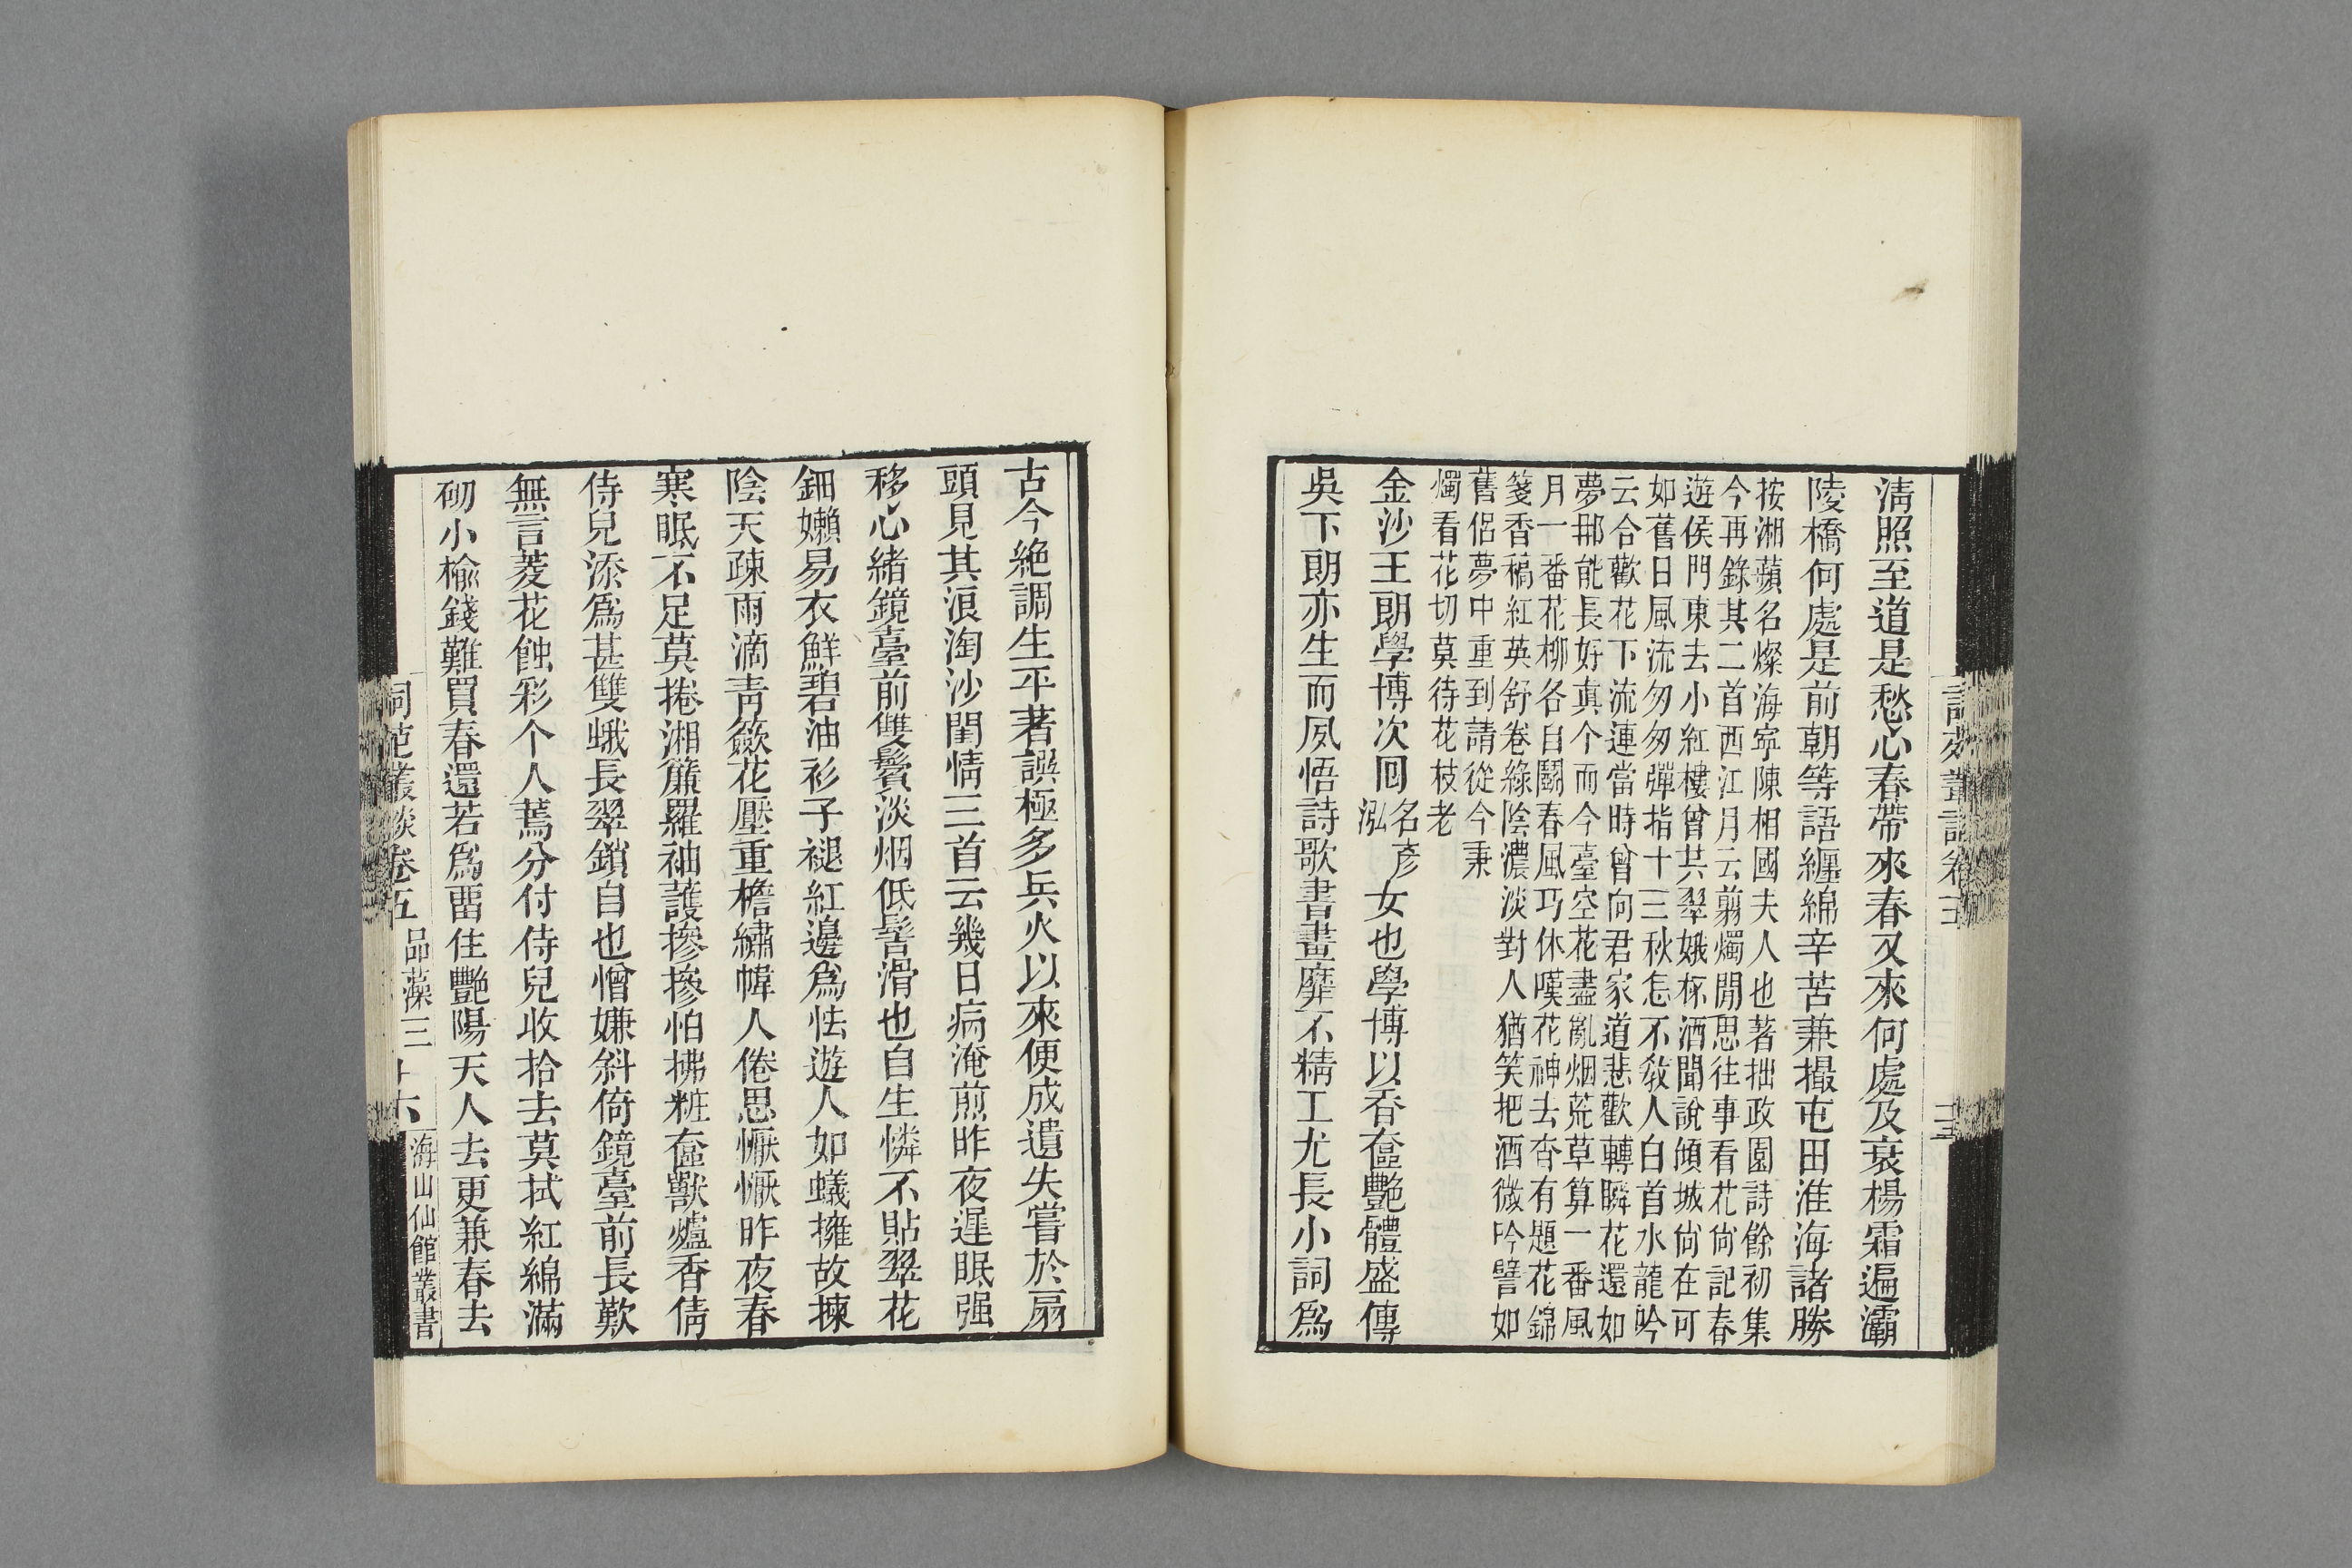 清照至道是愁心春帶來春又來何處及衰楊霜遍灞
陵橋何處是前朝等語纏綿辛苦兼撮屯田淮海諸勝
按湘蘋名燦海寧陳相國夫人也著拙政園詩餘初集
今再錄其二首西江月云剪燭閒思往事看花尙記春
遊侯門東去小紅樓曾共翠娥桮酒聞說傾城尙在可
如舊日風流匆匆彈指十三秋怎不敎人白首水龍吟
云合歡花下流連當時曾向君家道悲歡轉瞬花還如
夢那能長好眞个而今臺空花盡亂烟荒草算一番風
月一番花柳各自鬭春風巧休嘆花神去杳有題花錦
箋香稿紅英舒卷綠陰濃淡對人猶笑把酒微吟譬如
舊侶夢中重到請從今秉
燭看花切莫待花枝老
金沙王朗學博次囘名彥泓女也學博以香奩艷體盛傳
吳下朗亦生而夙悟詩歌書畫靡不精工尤長小詞爲
古今絶調生平著譔極多兵火以來便成遺失嘗於扇
頭見其浪淘沙閨情三首云幾日病淹煎昨夜遲眠强
移心緒鏡臺前雙鬢淡烟低髻滑也自生憐不貼翠花
鈿嬾易衣鮮碧油衫子褪紅邊爲怯遊人如蟻擁故揀
陰天疎雨滴靑籨花壓重檐繡幃人倦思懨懨昨夜春
寒眠不足莫捲湘簾羅袖護摻摻怕拂粧奩獸爐香倩
侍兒添爲甚雙蛾長翠鎖自也憎嫌斜倚鏡臺前長歎
無言菱花蝕彩个人蔫分付侍兒收拾去莫拭紅綿滿
砌小楡錢難買春還若爲畱住艷陽天人去更兼春去
詞苑叢談卷五 品藻三 十六 海山仙館叢書